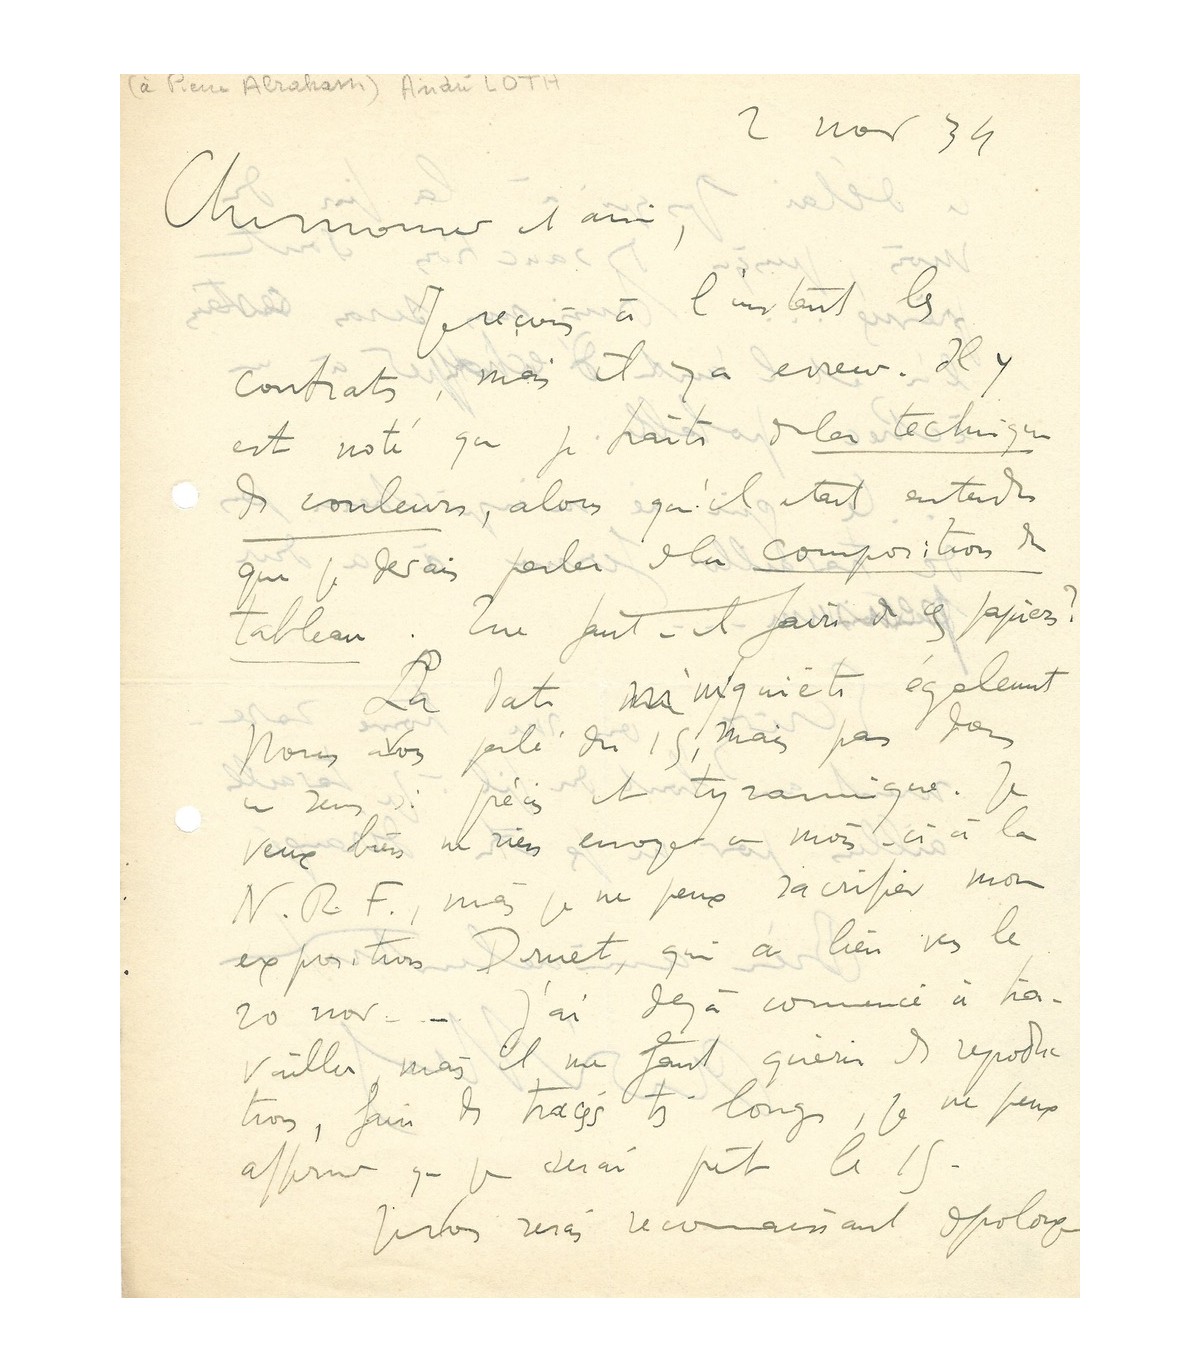 (à Pierre Abraham) André LOTH
2 nov 34
Cher monsieur et ami,
Je reçois à l'instant les
contrats, mais il y a erreur. Il y
est noté que je traite de la technique
des couleurs, alors qu'il était entendu
que je devais parler de la composition du
tableau. Que faut-il faire de ces papiers?
La date m'inquiète également
Nous avons parlé du 15, mais pas dans
un sens si précis et tyrannique. Je
veux bien ne rien envoyer ce mois-ci à la
N.R.F., mais je ne peux sacrifier mon
exposition Druet, qui a lieu vers le
20 nov - - J'ai déjà commencé à tra-
vailler, mais il me faut quérir des reproduc
tions, faire des tracés très longs, je ne peux
affirmer que je serai prêt le 15 -
Je vous serais reconnaissant de prolonger